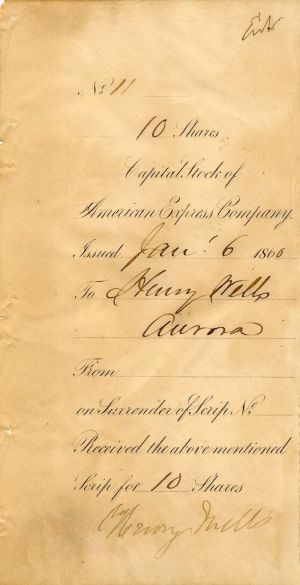 Ent
No. 11
10 Shares
Capital Stock of
American Express Company.
Issued Jan' 6 1866
To Henry Wells
Aurora
From
on Surrender of Scrip No.
Received the above mentioned
Scrip for 10 Shares
Henry Wells